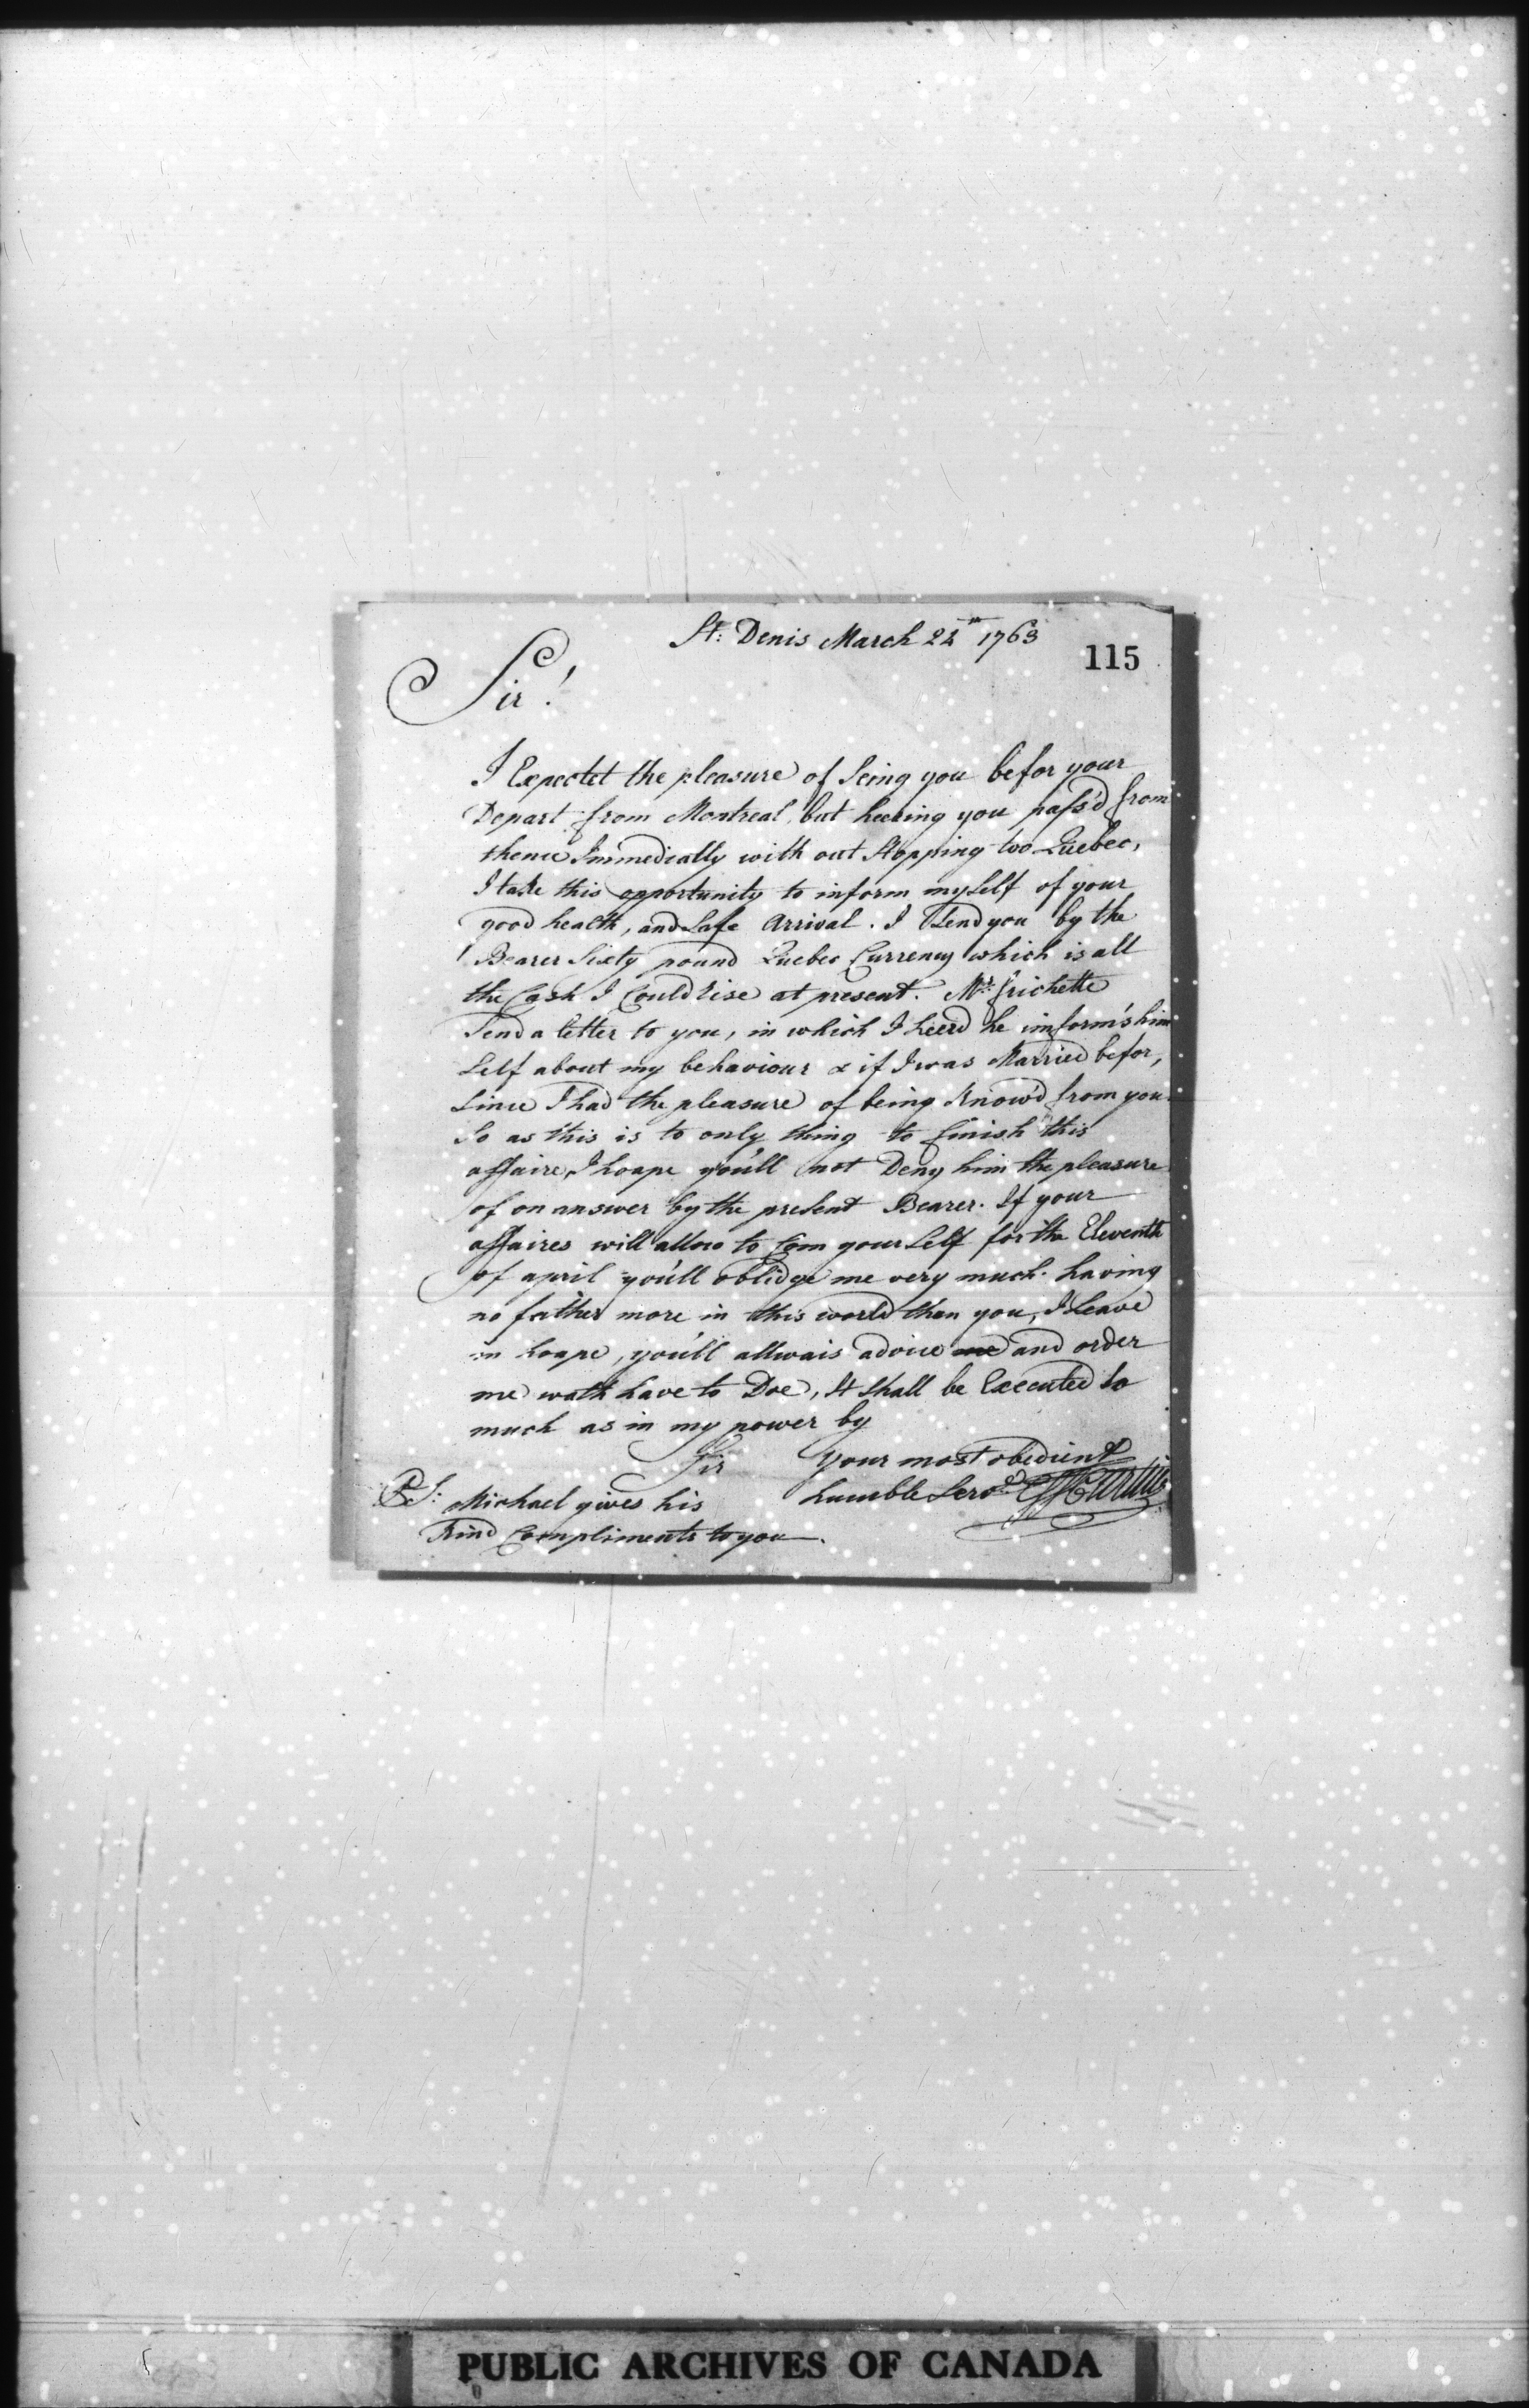 St: Denis March 22th 1763
115
Sir!
I Expectet the pleasure of Seing you befor your
Depart from Montreal, but heering you pass'd from
thence Immedially with out Stopping too Quebec,
I take this opportunity to inform mySelf of your
good health, and Safe Arrival. I Send you by the
Bearer Sixty pound Quebec Currency which is all
the Cash I Could rise at present. Mr. frichette
Send a letter to you, in which I heerd he imform's him
Self about my behaviour & if I was Married befor,
Since I had the pleasure of being Know'd from you.
So as this is to only thing to finish this
affaire, I hoape you'll not Deny him the pleasure
of on answer by the preSent Bearer. If your
affaires will allow to Com yourSelf for the Eleventh
of april you'll oblidge me very much. having
no father more in this world than you, I Leave
in hoape, you'll allwais advice me and order
me wath have to Doe, It Shall be Executed so
much as in my power by
Sir Your most obedient
humble Servt
PS: Michael gives his
Kind Compliments to you.
PUBLIC ARCHIVES OF CANADA